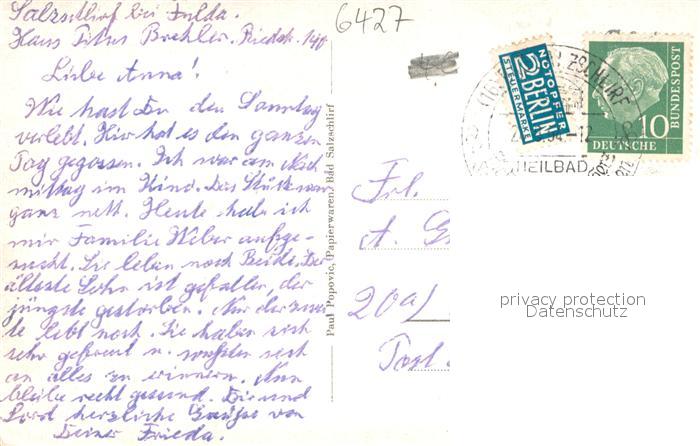 Salzschlirf bei Fulda.
Haus Titus Brehler. Riedstr.
Liebe Anna!
Wie hast Du den Sonntag
verlebt. Hier hat es den ganzen
Tag gegossen. Ich war am Nach-
mittag im Kino. Das Stück war
ganz nett. Heute habe ich
mir Familie Weber aufge-
sucht. Sie leben noch Beide. Der
älteste Sohn ist gefallen, der
jüngste gestorben. Nur der zwei-
te lebt noch. Sie haben sich
sehr gefreut u. wußten sich
an alles zu erinnern. Nun
bleibe recht gesund. Dir und
herzliche Grüße von
Deiner Frieda.
Paul Popovic, Papierwaren, Bad Salzschlirf
6427
NOTOPFER
2 BERLIN
STEUERMARKE
10
DEUTSCHE
BUNDESPOST
ZSCHLIRF
HEILBAD
Frl.
A. G
20a)
Post
privacy protection
Datenschutz